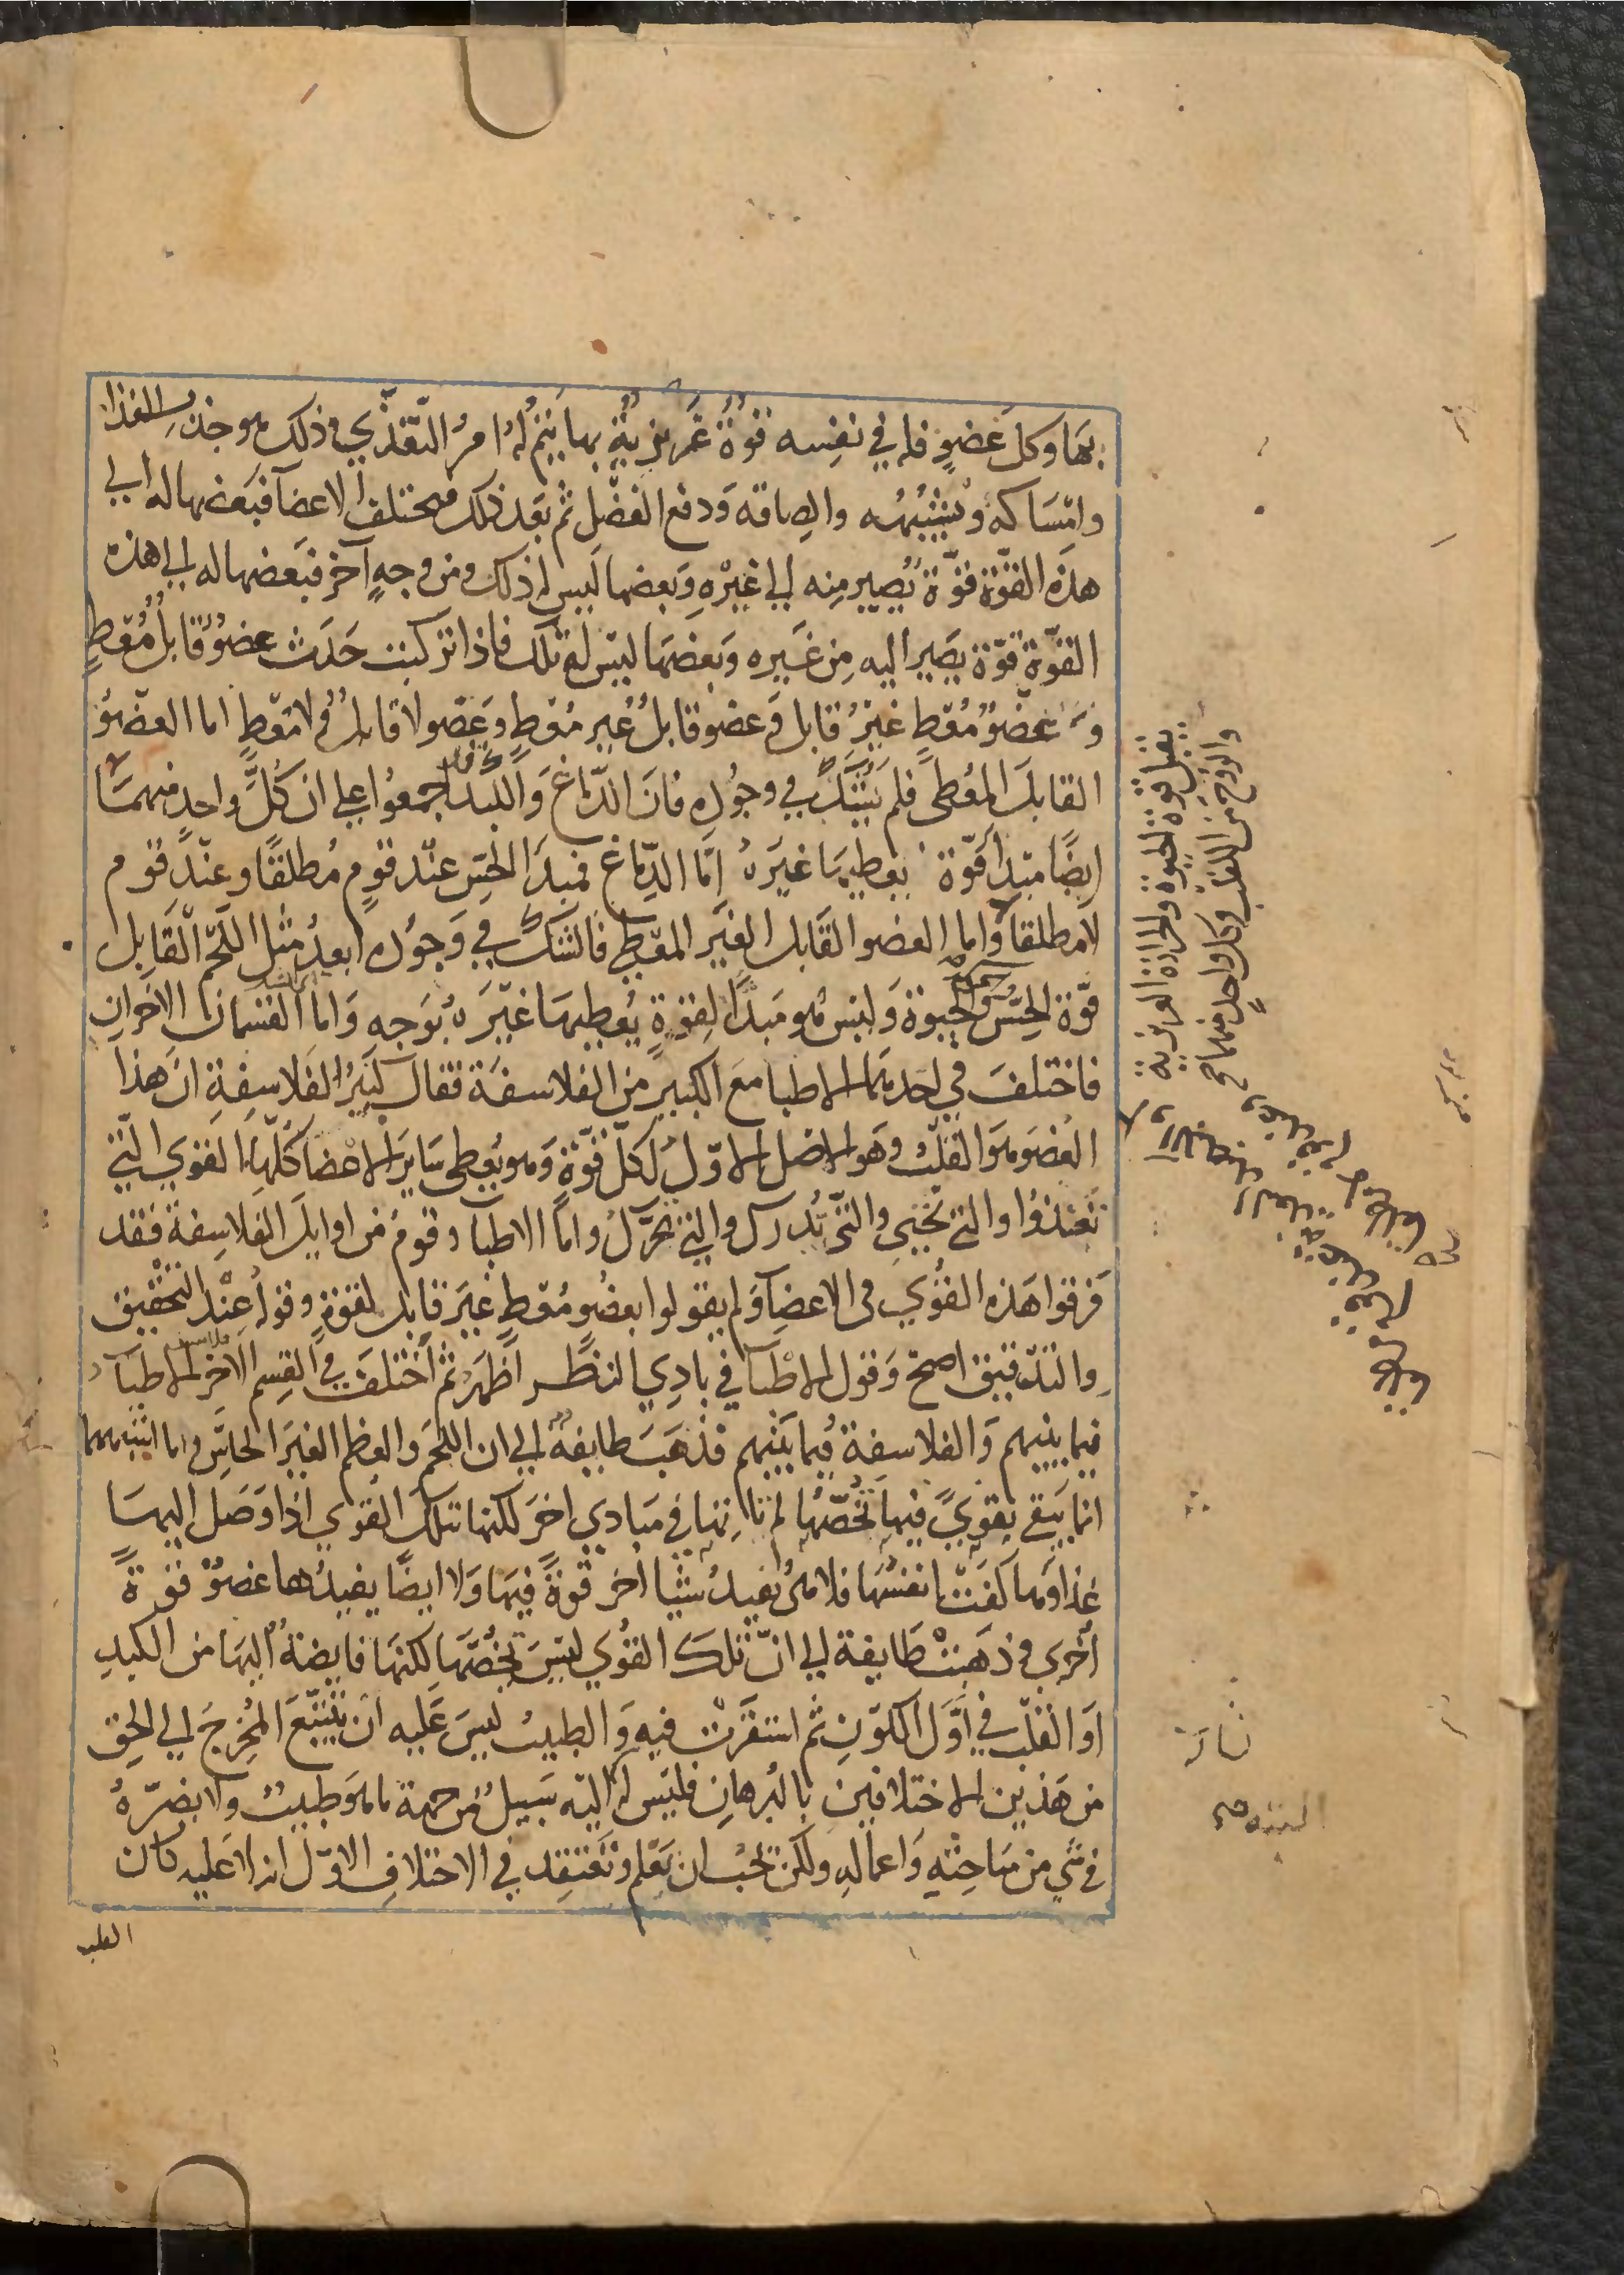 بها وكل عضو فله في نفسه قوة غريزية بها يتم له امر التغذي وذلك هو جذب الغذا
وامساكه وتشبيهه والصاقه ودفع الفضل ثم بعد ذلك مختلف الاعضآ فبعضها له الي
هذه القوة قوة تصير منه الي غيره وبعضها ليس له ذلك ومن وجه آخر فبعضها له الي هذه
القوة قوة يصير اليه من غيره وبعضها ليس له تلك فاذا تركبت حدث عضو قابل مُعطٍ
وعضو مُعطٍ غير قابل وعضو قابل غير مُعطٍ وعضو لا قابل ولا مُعطٍ اما العضو
القابل المُعطى فلم يشك في وجوده فان الدماغ والكبد اجمعوا على ان كلَّ واحد منهما
ايضًا مبدا قوة يعطيها غيره امّا الدماغ فمبدا الحس عند قوم مُطلقًا وعند قوم
لا مطلقا واما العضو القابل الغير المعطى فالشك في وجوده ابعد مثل اللحم القابل
قوّة الحسّ والحيوة وليس هو مبدًا لقوةٍ يُعطيها غيره بوجه واما القسمان الاخران
فاختلف في احدهما الاطبا مع الكبير من الفلاسفة فقال كبير الفلاسفة ان هذا
العضو هو القلب وهو الاصل الاوّل لكلّ قوّة وهو يُعطى ساير الاعضا كلّها القوي التي
تغتذوا والتي تحيي والتي تُدرك والتي تحرّك واما الاطبا وقوم من اوايل الفلاسفة فقد
فرقوا هذه القوي في الاعضآ ولم يقولوا بعضو مُعطٍ غير قابل لقوةٍ وقوله عند التحقيق
والتدقيق اصح وقول الاطبآ في بادي النظر اظهر ثم اختلف في القسم الاخر الاطبآ
فيما بينهم والفلاسفة فيما بينهم فذهب طايفة الي ان اللحم والعظم الغير الحاس وما اشبههما
انما يبقى بقوي فيها تخصّها لم تاتها في مبادي اخر لكنها تلك القوي اذا وصل اليها
غذاوها كفت انفسها فلا هى تفيد شيئا اخر قوةً فيها ولا ايضًا يفيدها عضو قوةً
أخرى وذهبت طايفة الي انّ تلك القوي ليس تخصّها لكنها فايضة اليها من الكبد
او القلب في اوّل الكون ثم استقرت فيه والطبيب ليس عليه ان يتتبع المخرج الي الحق
من هذين الاختلافين بالبرهان فليس له اليه سبيل من جهة ما هو طبيب ولا يضرّه
في شي من مباحثه واعماله ولكن يجب ان يعلم ويعتقد في الاختلاف الاوّل انه لا عليه كان
القلب
تقبل قوة الحيوة والحرارة الغريزية
والروح من القلب وكل واحد منهما